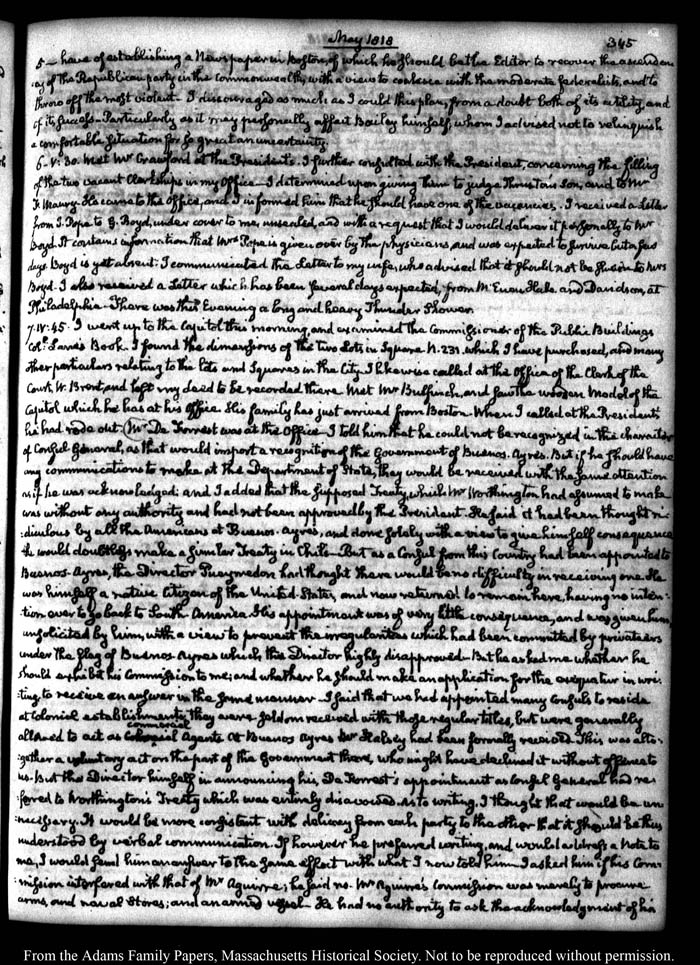 May 1818
345
5— have of establishing a Newspaper in Boston, of which he should be the Editor to recover the ascenden-
cy of the Republican party in the Commonwealth, with a view to coalesce with the moderate federalists, and to
throw off the most violent— I discouraged as much as I could this plan, from a doubt both of its utility, and
of its success— Particularly as it may personally affect Bailey himself, whom I advised not to relinquish
a comfortable situation for so great an uncertainty.
6— V: 30. Met Mr Crawford at the President's. I further consulted with the President, concerning the filling
of the two vacant Clerkships in my Office— I determined upon giving them to judge Thruston's Son, and to Mr
F. Maury. He came to the Office, and I informed him that he should have one of the vacancies. I received a Letter
from J. Pope to G. Boyd, under cover to me, unsealed, and with a request that I would deliver it personally to Mr
Boyd. It contains information that Mrs Pope is given over by the physicians, and was expected to survive but a few
days. Boyd is yet absent. I communicated the Letter to my wife, who advised that it should not be shewn to Mrs
Boyd. I also received a Letter which has been several days expected, from Mc Euen Hale and Davidson, at
Philadelphia— There was this Evening a long and heavy Thunder Shower.
7. IV: 45. I went up to the Capitol this morning, and examined the Commissioner of the Public Buildings
Col. Lane's Book. I found the dimensions of the two Lots in Square N. 231. which I have purchased, and many
other particulars relating to the lots and Squares in the City. I likewise called at the Office of the Clerk of the
Court, W. Brent, and left my deed to be recorded there. Met Mr Bulfinch, and saw the wooden Model of the
Capitol which he has at his Office. His family has just arrived from Boston. When I called at the President's
he had rode out. Mr De Forrest was at the Office— I told him that he could not be recognized in the character
of Consul General, as that would import a recognition of the Government of Buenos-Ayres. But if he should have
any communications to make at the Department of State, they would be received with the same attention
as if he was acknowledged: and I added that the supposed Treaty, which Mr Worthington had assumed to make
was without any authority and had not been approved by the President. He said it had been thought ri-
:diculous by all the Americans at Buenos-Ayres, and done solely with a view to give himself consequence
He would doubtless make a similar Treaty in Chili— But as a Consul from this Country had been appointed to
Buenos-Ayres, the Director Pueyrredon had thought there would be no difficulty in receiving one. He
was himself a native Citizen of the United States, and now returned to remain here, having no inten-
:tion ever to go back to South America. His appointment was of very little consequence, and was given him,
unsolicited by him, with a view to prevent the irregularities which had been committed by privateers
under the flag of Buenos Ayres which the Director highly disapproved— But he asked me whether he
should exhibit his Commission to me; and whether he should make an application for the exequatur in wri-
:ting to receive an answer in the same manner— I said that we had appointed many Consuls to reside
at Colonial establishments, they were seldom received with those regular titles, but were generally
commercial
allowed to act as Agents. At Buenos Ayres Mr Halsey had been formally received. This was alto-
:gether a voluntary act on the part of the Government there, who might have declined it without offence to
us. But the Director himself in announcing his, De Forrest's appointment as Consul General had re-
:ferred to Worthington's Treaty which was entirely disavowed. As to writing, I thought that would be un-
:necessary. It would be more consistent with delicacy from each party to the other that it should be thus
understood by verbal communication. If however he preferred writing, and would address a Note to
me, I would send him an answer to the same effect with what I now told him. I asked him if his Com-
:mission interfered with that of Mr Aguirre; he said no. Mr Aguirre's Commission was merely to procure
arms, and naval Stores; and an armed vessel— He had no authority to ask the acknowledgment of his
From the Adams Family Papers, Massachusetts Historical Society. Not to be reproduced without permission.